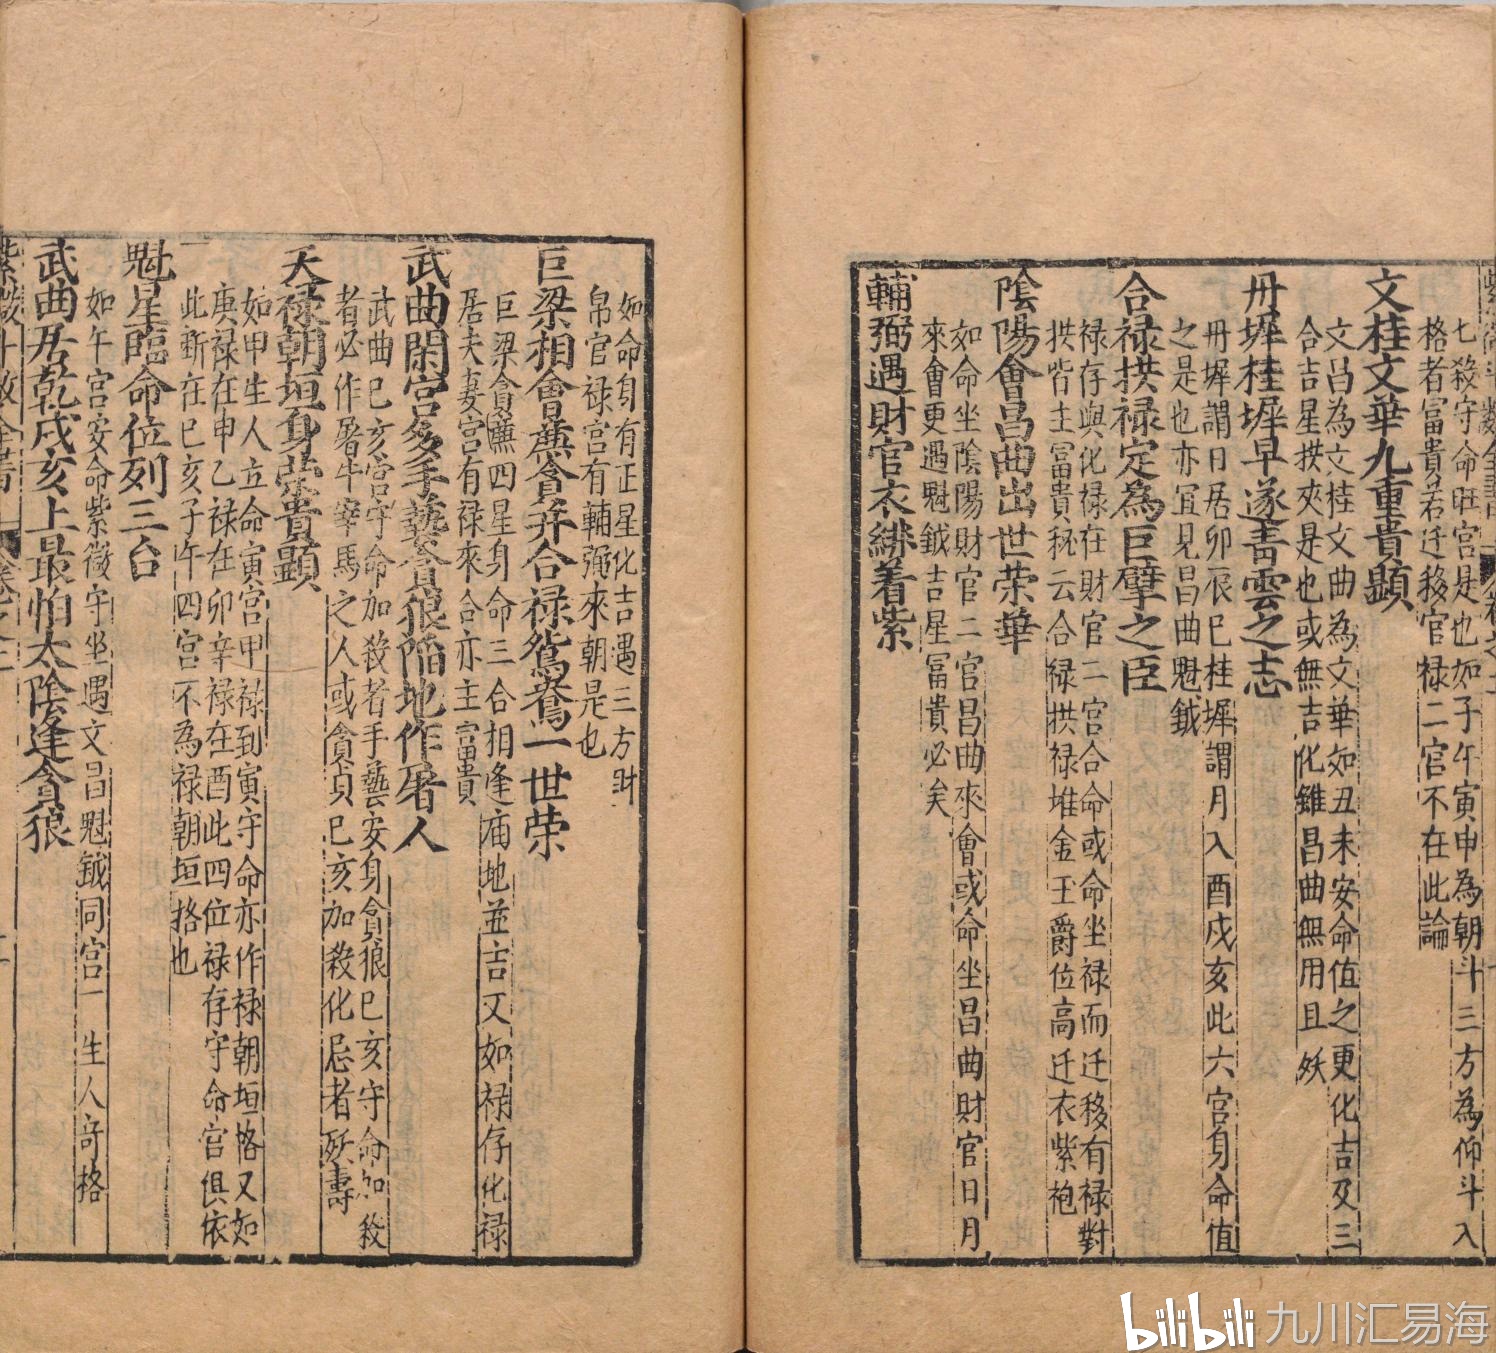 七殺守命旺宮是也如子午寅申為朝斗三方為仰斗入
格者富貴若迁移官禄二宫不在此論
文桂文華九重貴顯
文昌為文桂文曲為文華如丑未安命值之更化吉及三
合吉星拱夾是也或無吉化雖昌曲無用且妖
丹墀桂墀早遂青雲之志
丹墀謂日居卯辰巳桂墀謂月入酉戍亥此六宮身命值
之是也亦宜見昌曲魁鉞
合禄拱禄定為巨擘之臣
禄存與化禄在財官二宮合命或命坐禄而迁移有禄對
拱皆主富貴秘云合禄拱禄堆金玉爵位高迁衣紫袍
陰陽會昌曲出世荣華
如命坐陰陽財官二宮昌曲來會或命坐昌曲財官日月
來會更遇魁鉞吉星富貴必矣
輔弼遇財官衣緋着紫
如命身有正星化吉遇三方財
帛官禄宮有輔弼來朝是也
巨梁相會廉貪并合禄鴛鴦一世荣
巨梁貪廉四星身命三合相逢庙地並吉又如禄存化禄
居夫妻宮有禄來合亦主富貴
武曲閑宮多手藝貪狼陷地作屠人
武曲巳亥宮守命加殺者手藝安身貪狼巳亥守命加殺
者必作屠牛宰馬之人或貪貞巳亥加殺化忌者殀壽
天禄朝垣身榮貴顯
如甲生人立命寅宮甲禄到寅守命亦作禄朝垣格又如
庚禄在申乙禄在卯辛禄在酉此四位禄存守命宮俱依
此斷在巳亥子午四宮不為禄朝垣挌也
魁星臨命位列三台
如午宮安命紫微守坐遇文昌魁鉞同宫一生人奇格
武曲居乾戌亥上最怕太陰逢貪狼